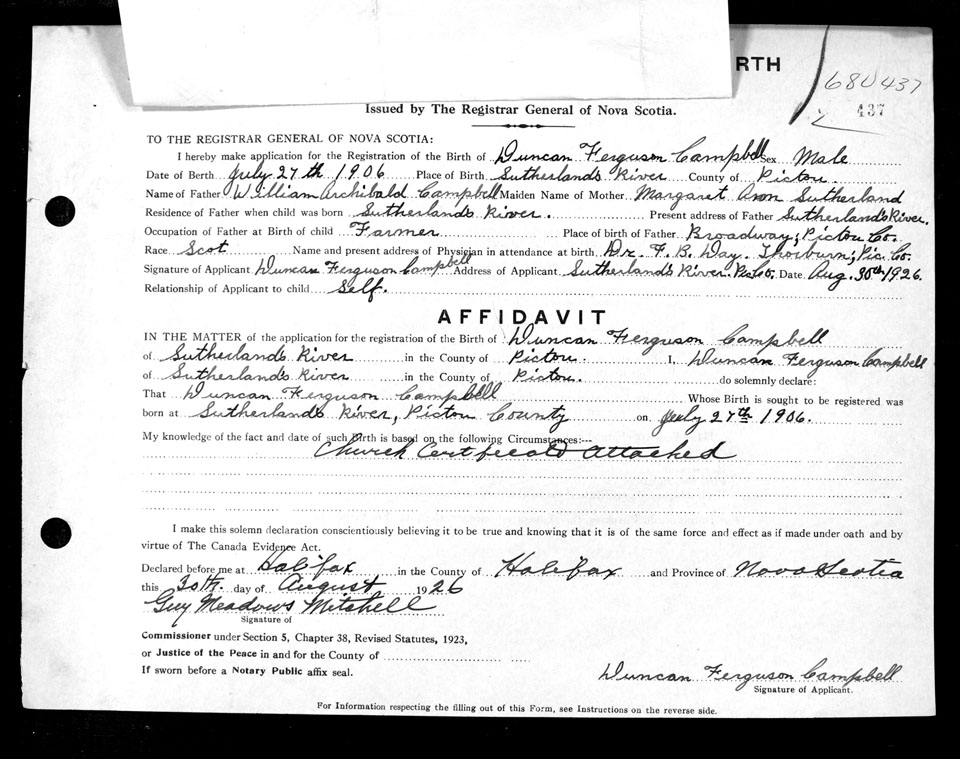 RTH
680437
437
Issued by The Registrar General of Nova Scotia.
TO THE REGISTRAR GENERAL OF NOVA SCOTIA:
I hereby make application for the Registration of the Birth of Duncan Ferguson Campbell Sex Male
Date of Berth July 27th 1906 Place of Birth Sutherland's River County of Pictou
Name of Father William Archibald Campbell Maiden Name of Mother Margaret Ann Sutherland
Residence of Father when child was born Sutherland's River. Present address of Father Sutherland's River.
Occupation of Father at Birth of child Farmer Place of birth of Father Broadway, Pictou Co.
Race Scot Name and present address of Physician in attendance at birth Dr. F. B. Day. Thorburn, Pic. Co.
Signature of Applicant Duncan Ferguson Campbell Address of Applicant Sutherland's River. Pic. Co. Date Aug. 30th 1926.
Relationship of Applicant to child Self.
AFFIDAVIT
IN THE MATTER of the application for the registration of the Birth of Duncan Ferguson Campbell
of Sutherland's River in the County of Pictou. I, Duncan Ferguson Campbell
of Sutherland's River in the County of Pictou. do solemnly declare:
That Duncan Ferguson Campbell Whose Birth is sought to be registered was
born at Sutherland's River, Pictou County on July 27th 1906.
My knowledge of the fact and date of such Birth is based on the following Circumstances:---
Church Certificate attached
I make this solemn declaration conscientiously believing it to be true and knowing that it is of the same force and effect as if made under oath and by
virtue of The Canada Evidence Act.
Declared before me at Halifax in the County of Halifax and Province of Nova Scotia
this 30th. day of August 1926
Guy Meadows Mitchell
Signature of
Commissioner under Section 5, Chapter 38, Revised Statutes, 1923,
or Justice of the Peace in and for the County of
If sworn before a Notary Public affix seal.
Duncan Ferguson Campbell
Signature of Applicant.
For Information respecting the filling out of this Form, see Instructions on the reverse side.